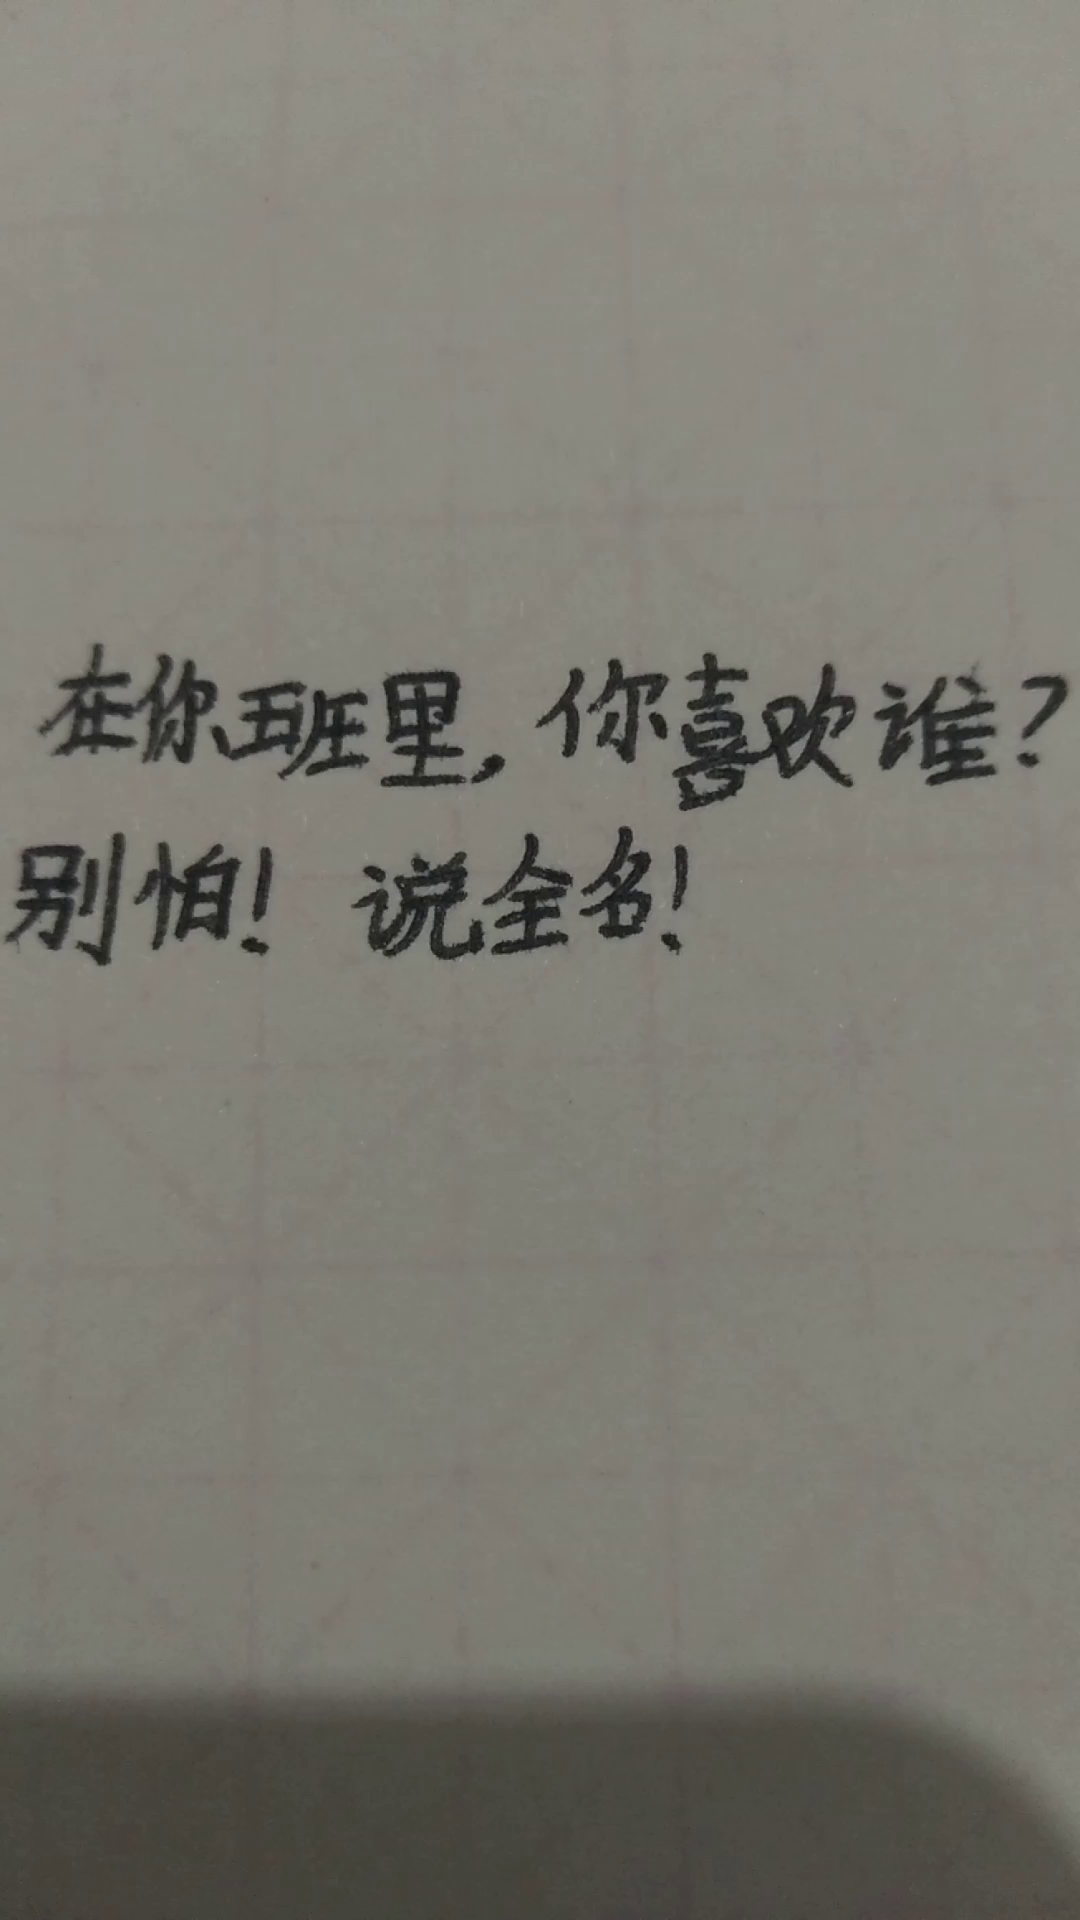 在你班里，你喜欢谁？
别怕！说全名！